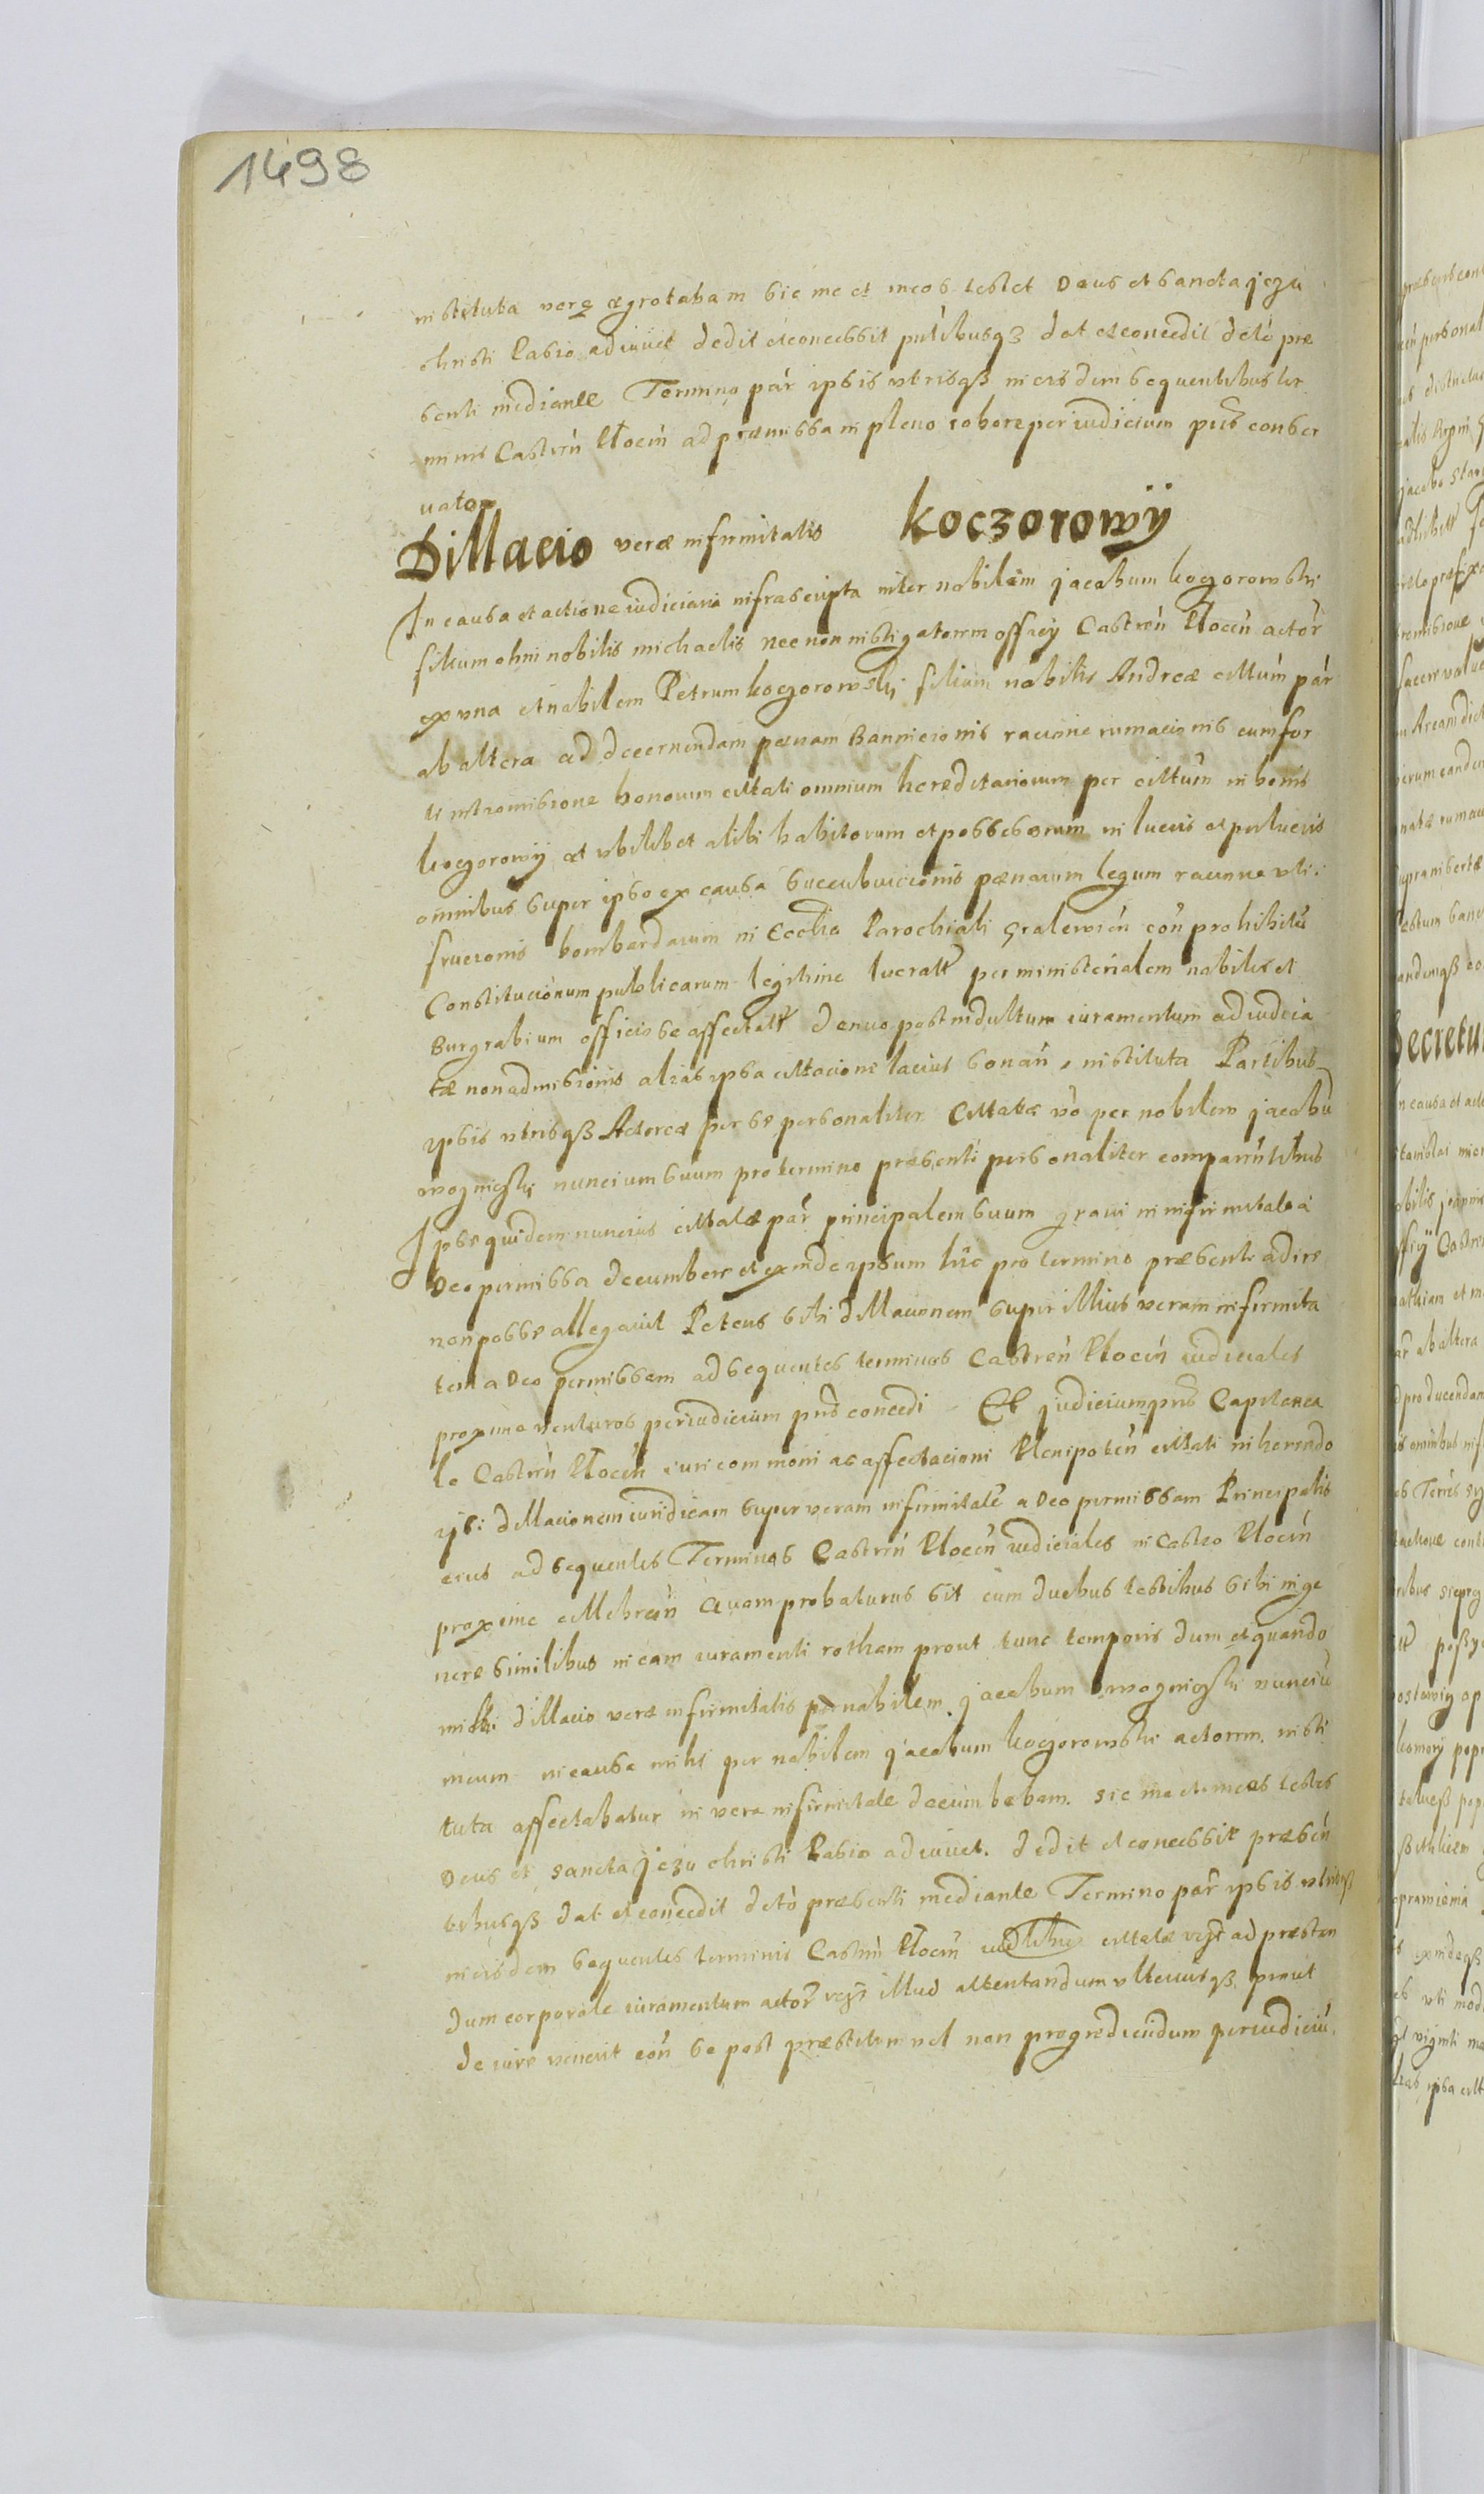 1498
instituta vere ægrotabam sic me et meos testes Deus et sancta jezu
christi Passio adiuvet dedit et concessit pntibusq3 dat et concedit decto præ
senti mediante Termino par ipsis utrisqß in eisdem sequentibus ter
minis Castren Plocen ad præmissa in pleno robore per iudicium pns conser
uato
Dillacio veræ infirmitatis koczorowÿ
In causa et actione iudiciaria infrascripta inter nobilem jacobum koczorowski
filium olim nobilis michaelis nec non instigatorem officÿ Castren Plocen actor
ex vna et nobilem Petrum koczorowski filium nobilis Andreæ cittatum par
ab altera ad decernendam pænam Bannicionis racione rumacionis cum for
ti intromissione bonorum cittati omnium hereditariorum per cittatum in bonis
koczorowÿ et vbilibet alibi habitorum et possessorum in lucris et perlucris
omnibus super ipso ex causa succubuicionis pænarum legum racione vti
fruicionis bombardarum in Ecclia Parochiali Gralewien con prohibitas
Constitucionum publicarum legitime lucratr per ministerialem nobiles et
Burgrabium officio se affectatr denuo post indultum iuramentum adiudica
tæ non admissionis alias ipsa cittacione lacius sonan, instituta Partibus
ipsis utrisqß Actorea per se personaliter Cittata vo per nobilem jacobu
woznicski nuncium suum pro termino præsenti personaliter comparrentibus
Ipse quidem nuncius cittatæ par principalem suum graui in infirmitate a
Deo permissa decumbere et exinde ipsum huc pro termino præsenti adire
non posse allegavit Petens sibi dillacionem super illius veram infirmita
tem a Deo permissam ad sequentes terminos Castren Plocen iudiciales
proxime venturos per iudicium pns concedi Et judicium pns Capitanea
le Castren Plocen iuri communi ac affectacioni Plenipoten cittati inherendo
ipsi dillacionem iuridicam super veram infirmitate a Deo permissam Principalis
eius ad sequentes Terminos Castren Plocen iudiciales in Castro Plocen
proxime cellebran Quam probaturus sit cum duobus testibus sibi in ge
nere similibus in eam iuramenti rotham prout tunc temporis dum et quando
mihi dillacio veræ infirmitatis per nobilem jacobum woznicski nunciu
meum in causa mihi per nobilem jacobum koczorowski actorem insti
tuta affectabatur in vera infirmitate decumbebam. Sic me et meos testes
Deus et sancta jezu christi Passio adiuvet. dedit et concessit præsen
tibusqß dat et concedit decto præsenti mediante Termino par ipsis utrisqß
in eisdem sequentes terminis Castren Plocen iudlibus cittatæ vero ad præstan
dum corporale iuramentum actor vero illud attentandum vlteriusqß prout
de iure venerit con se post præstitum vel non progrediendum per iudiciu.